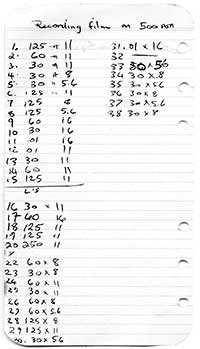 Recording film on 500 ASA
1. 125 - 11
2. 60 - 11
3. 30 - 11
4. 30 + 8
5. 30 + 5.6
6. 125 - 11
7 125 8
8 125 5.6
9 60 16
10 30 16
11 .01 16
12 .01 11
13 30 11
14 60 11
15 125 11
16 30 x 11
17 60 16
18 125 11
19 125 11
20 250 11
22 60 x 8
23 30 x 8
24 60 x 11
25 30 x 11
26 60 x 8
29 60 x 5.6
28 125 x 8
29 125 x 11
30. 30 x 56
31 .01 x 16
32
33 30 x 56
34 30 x 8
35 30 x 56
36 30 x 8
37 30 x 5.6
38 30 x 8